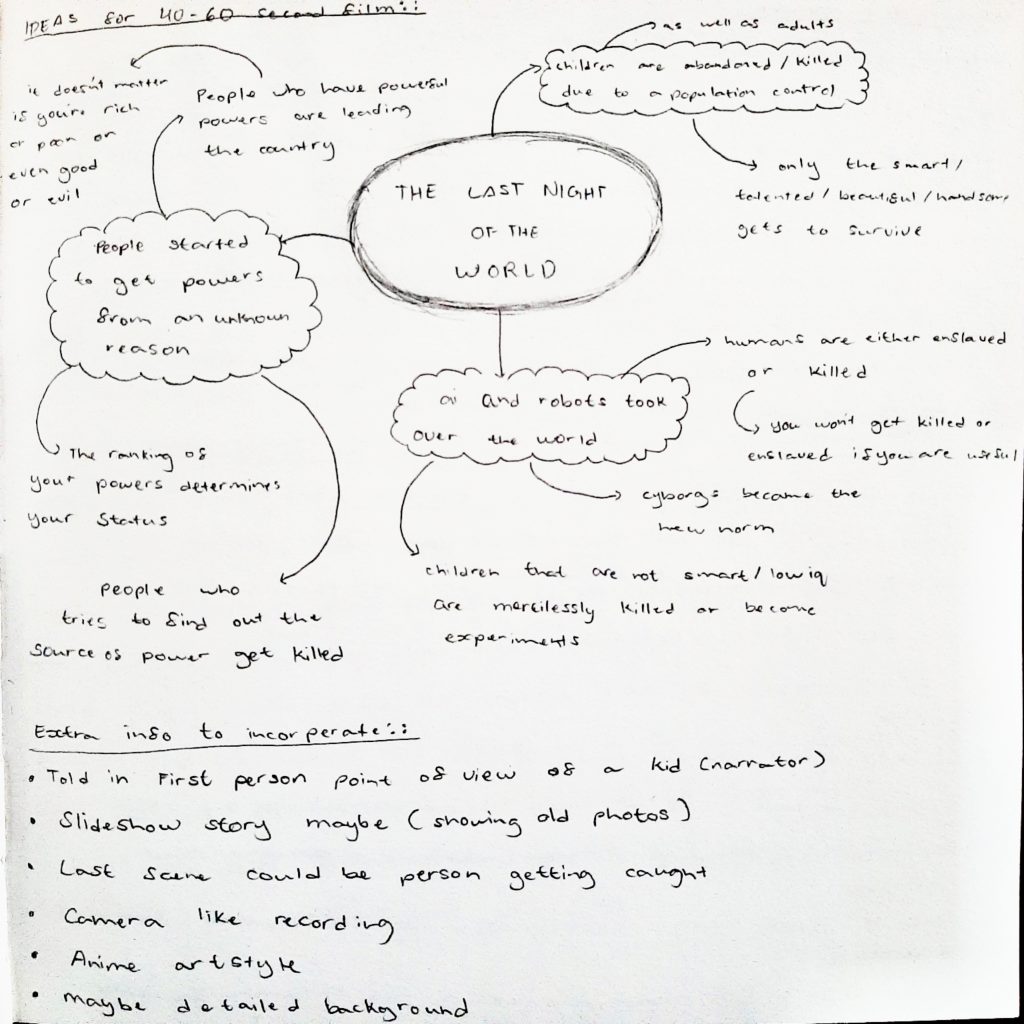 IDEAS for 40-60 second film::
as well as adults
children are abandoned / killed
due to a population control
only the smart /
talented / beautiful / handsome
gets to survive
it doesn't matter
if you're rich
or poor or
even good
or evil
People who have powerful
powers are leading
the country
THE LAST NIGHT
OF THE
WORLD
People started
to get powers
from an unknown
reason
The ranking of
your powers determines
your status
People who
tries to find out the
source of power get killed
ai and robots took
over the world
humans are either enslaved
or killed
you won't get killed or
enslaved if you are useful
cyborgs became the
new norm
children that are not smart / low iq
are mercilessly killed or become
experiments
Extra info to incorperate::
• Told in First person point of view of a kid (narrator)
• Slideshow story maybe (showing old photos)
• Last scene could be person getting caught
• Camera like recording
• Anime artstyle
• maybe detailed background